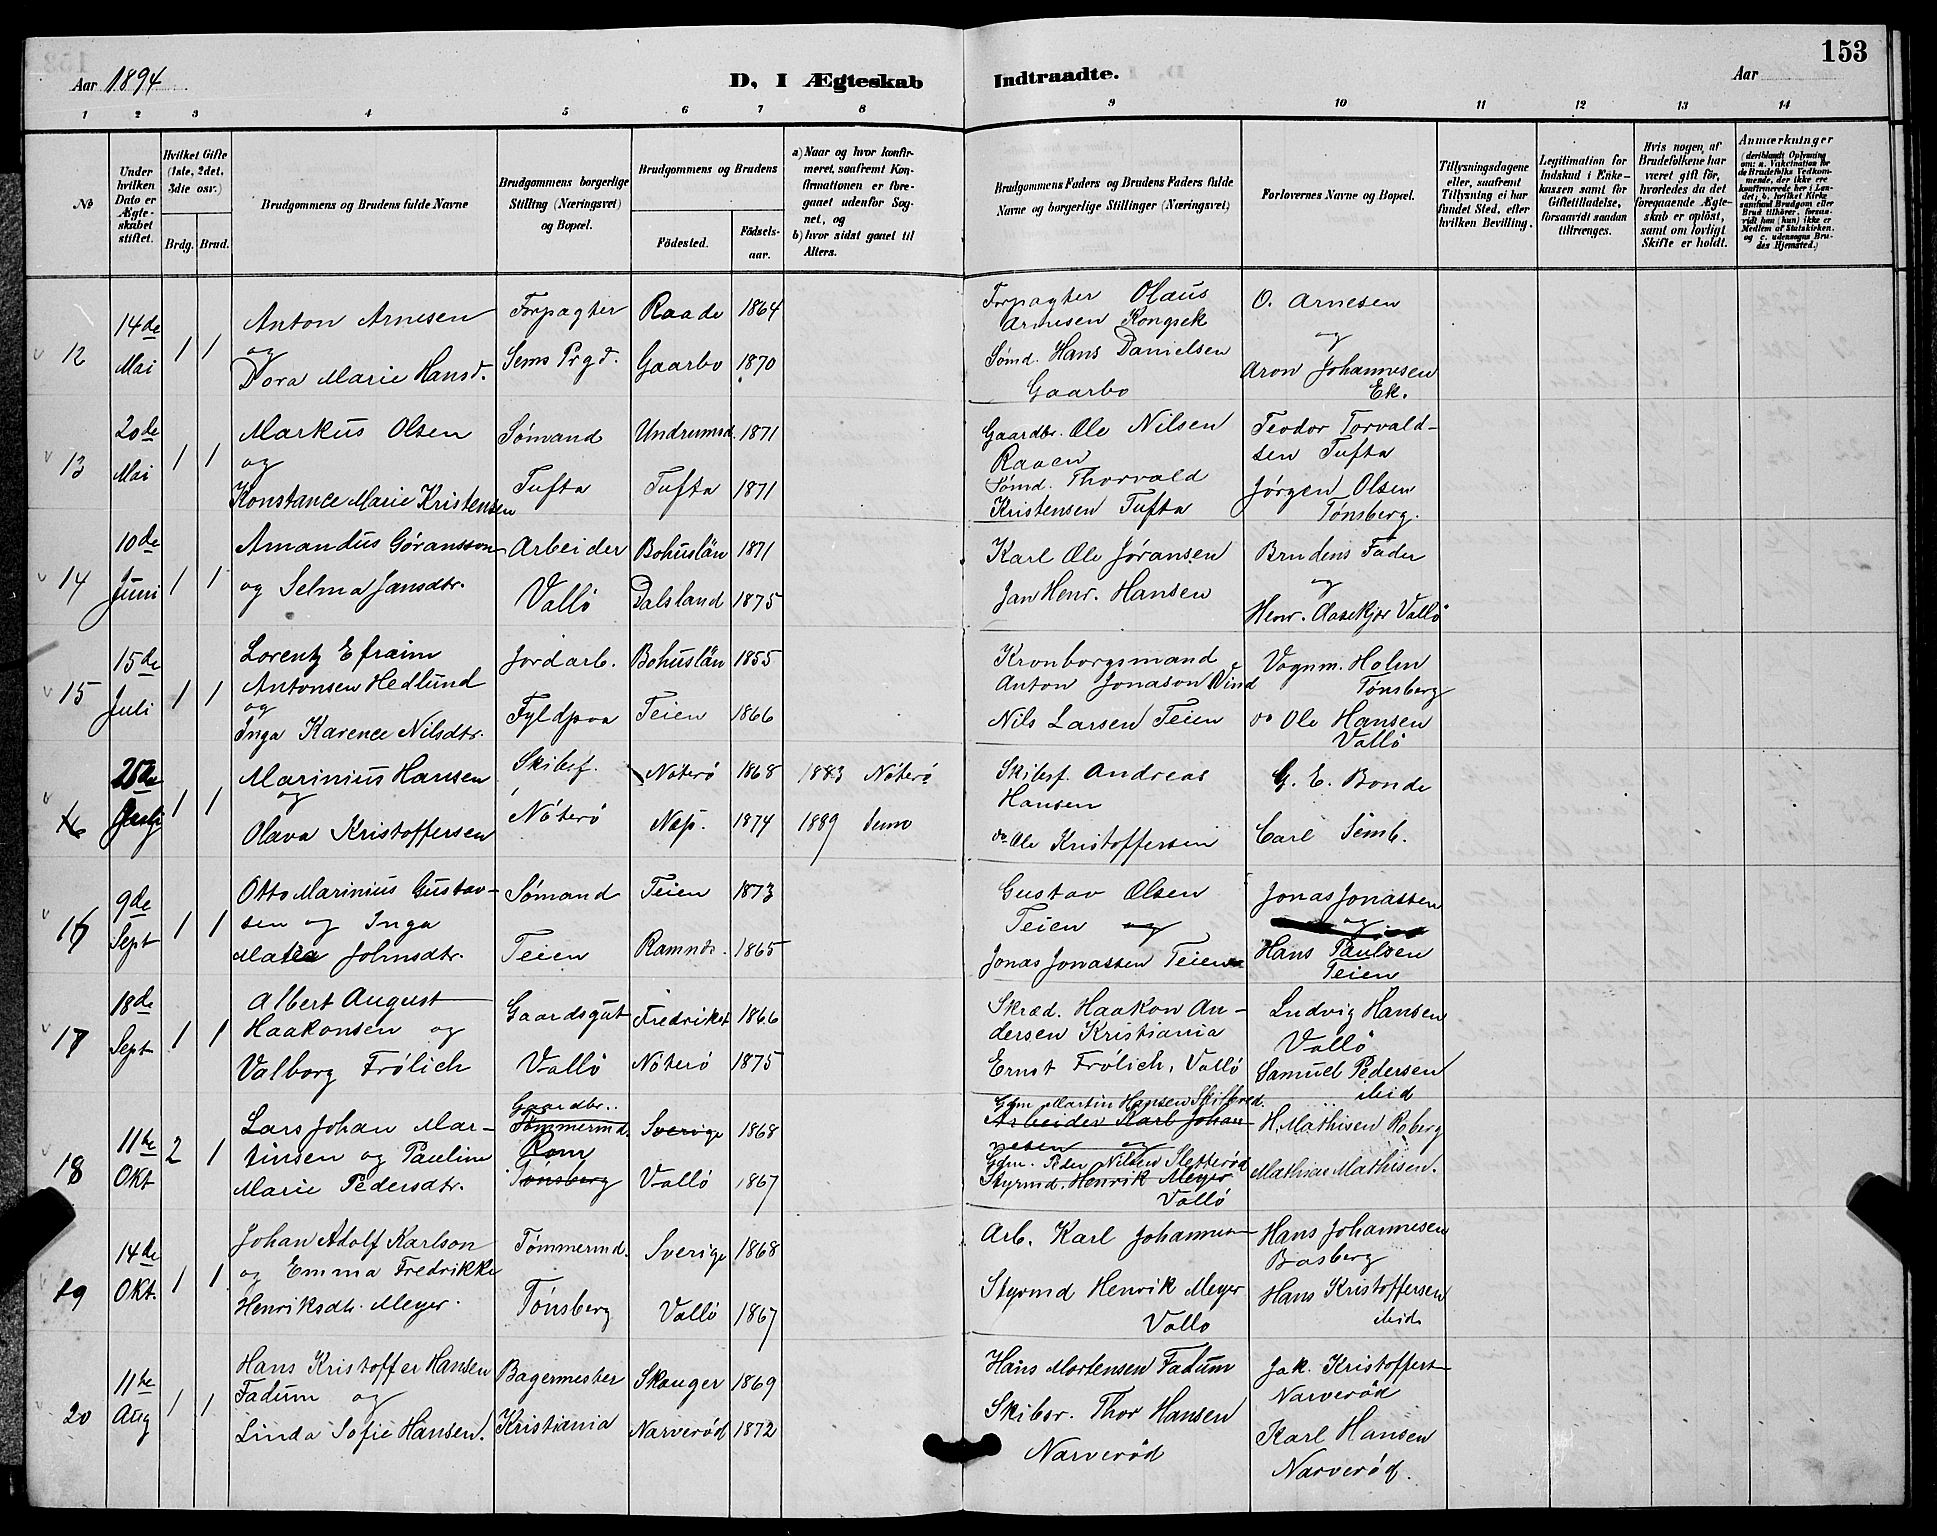 153
Aar 1894
D, I Ægteskab Indtraadte.
Aar
1 2 3 4 5 6 7 8 9 10 11 12 13 14
No
Under hvilken Dato er Ægteskabet stiftet.
Hvilket Gifte (1ste, 2det, 3die osv.)
Brdg. Brud.
Brudgommens og Brudens fulde Navne
Brudgommens borgerlige Stilling (Næringsvei) og Bopæl.
Brudgommens og Brudens
Fødested.
Fødselsaar.
a) Naar og hvor konfirmeret, saafremt Konfirmationen er foregaaet udenfor Sognet, og
b) hvor sidst gaaet til Alters.
Brudgommens Faders og Brudens Faders fulde Navne og borgerlige Stillinger (Næringsvei)
Forlovernes Navne og Bopæl.
Tillysningsdagene eller, saafremt Tillysning ei har fundet Sted, efter hvilken Bevilling.
Legitimation for Indskud i Enkekassen samt for Giftetilladelse, forsaavidt saadan tiltrænges.
Hvis nogen af Brudefolkene har været gift før, hvorledes da det foregaaende Ægteskab er opløst, samt om lovligt Skifte er holdt.
Anmærkninger
(deriblandt Oplysning om: a. Vakcination for de Brudefolks Vedkommende, der ikke ere konfirmerede her i Landet; b. hvilket Kirkesamfund Brudgom eller Brud tilhører, forsaavidt han (hun) ikke er Medlem af Statskirken. og c. udensogns Brudes Hjemsted.)
12 14de Mai 1 1
Anton Arnesen
og
Dora Marie Hansd.
Forpagter
Sems Prgd.
Raade 1864
Gaarbo 1870
Forpagter Olaus
Arnesen Kongsek
Sømd. Hans Danielsen
Gaarbo
O. Arnesen
og
Aron Johannesen
Ek.
13 20de Mai 1 1
Markus Olsen
og
Konstance Marie Kristensen
Sømand
Tufta
Undrumsd. 1871
Tufta 1871
Gaardbr. Ole Nilsen
Raaen
Sømd. Thorvald
Kristensen Tufta
Teodor Torvald-
sen Tufta
Jørgen Olsen
Tønsberg.
14 10de Juni 1 1
Amandus Göransson
og Selma Jansdtr.
Arbeider
Vallö
Bohuslän 1871
Dalsland 1875
Karl Ole Jöransen
Jan Henr. Hansen
Brudens Fader
og
Henr. Aasekjær Vallö
15 15de Juli 1 1
Lorentz Efraim
Antonsen Hedlund
og
Inga Karence Nilsdtr.
Jordarb.
Fyldpaa
Bohuslän 1855
Teien 1866
Kronborgsmand
Anton Jonason Wind
Nils Larsen Teien
Vognm. Holm
Tønsberg
do Ole Hansen
Vallö
25de 1 1
Marinius Hansen
og
Olava Kristoffersen
Skibsf.
Nöterö
Nöterö 1868 1883 Nöterö
Nøs. 1874 1889
Skibsf. Andreas
Hansen
do Ole Kristoffersen
G. E. Bonde
Carl Semb.
16 9de Sept 1 1
Otto Marinius Gustav-
sen og Inga
Johnsdtr.
Sømand
Teien
Teien 1873
Ramnes. 1865
Gustav Olsen
Teien og
Jonas Jonassen Teien
Jonas Jonassen
og
Hans Paulsen
Teien
17 18de Sept 1 1
Albert August
Haakonsen og
Valborg Frölich
Gaardsgut
Vallö
Fredrikst 1866
Nöterö 1875
Skræd. Haakon An-
dersen Kristiania
Ernst Frölich, Vallö
Ludvig Hansen
Vallö
Samuel Pedersen
ibid
18 11te Okt 2 1
Lars Johan Mar-
tinsen og Pauline
Marie Pedersdtr.
Gaardbr.
Tømmermd.
Rom
Tønsberg
Sverige 1868
Vallö 1867
Gdm. Martin Hansen
Arbeider Karl Johan-
nesen og
Gdm. Peder Nilsen Sletterød
Styrmd. Henrik Meyer
Vallö
H. Mathisen Roberg
Mathias Mathisen.
19 14de Okt. 1 1
Johan Adolf Karlson
og Emma Fredrikke
Henriksdt. Meyer.
Tømmermd.
Tønsberg
Sverige 1868
Vallö 1867
Arb. Karl Johannesen
Styrmd Henrik Meyer
Vallo
Hans Johannesen
Basberg
Hans Kristoffersen
ibid
20 11te Aug 1 1
Hans Kristoffer Hansen
Fadum og
Linda Sofie Hansen.
Bagermester
Kristiania
Skouger 1869
Narverød 1872
Hans Mortensen Fadum
Skibsr. Thor Hansen
Narverød
Jak. Kristoffers
Narverød
Karl Hansen
Narverød.